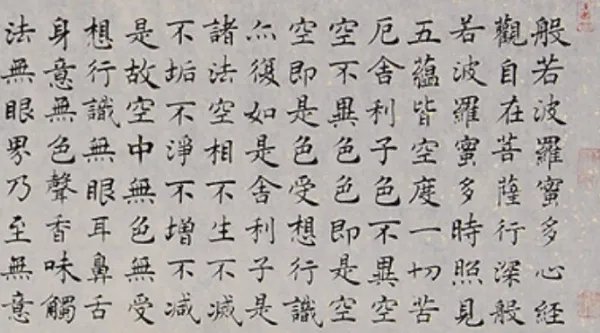 般若波羅蜜多心經
觀自在菩薩行深般
若波羅蜜多時照見
五蘊皆空度一切苦
厄舍利子色不異空
空不異色色即是空
空即是色受想行識
亦復如是舍利子是
諸法空相不生不滅
不垢不淨不增不减
是故空中無色無受
想行識無眼耳鼻舌
身意無色聲香味觸
法無眼界乃至無意